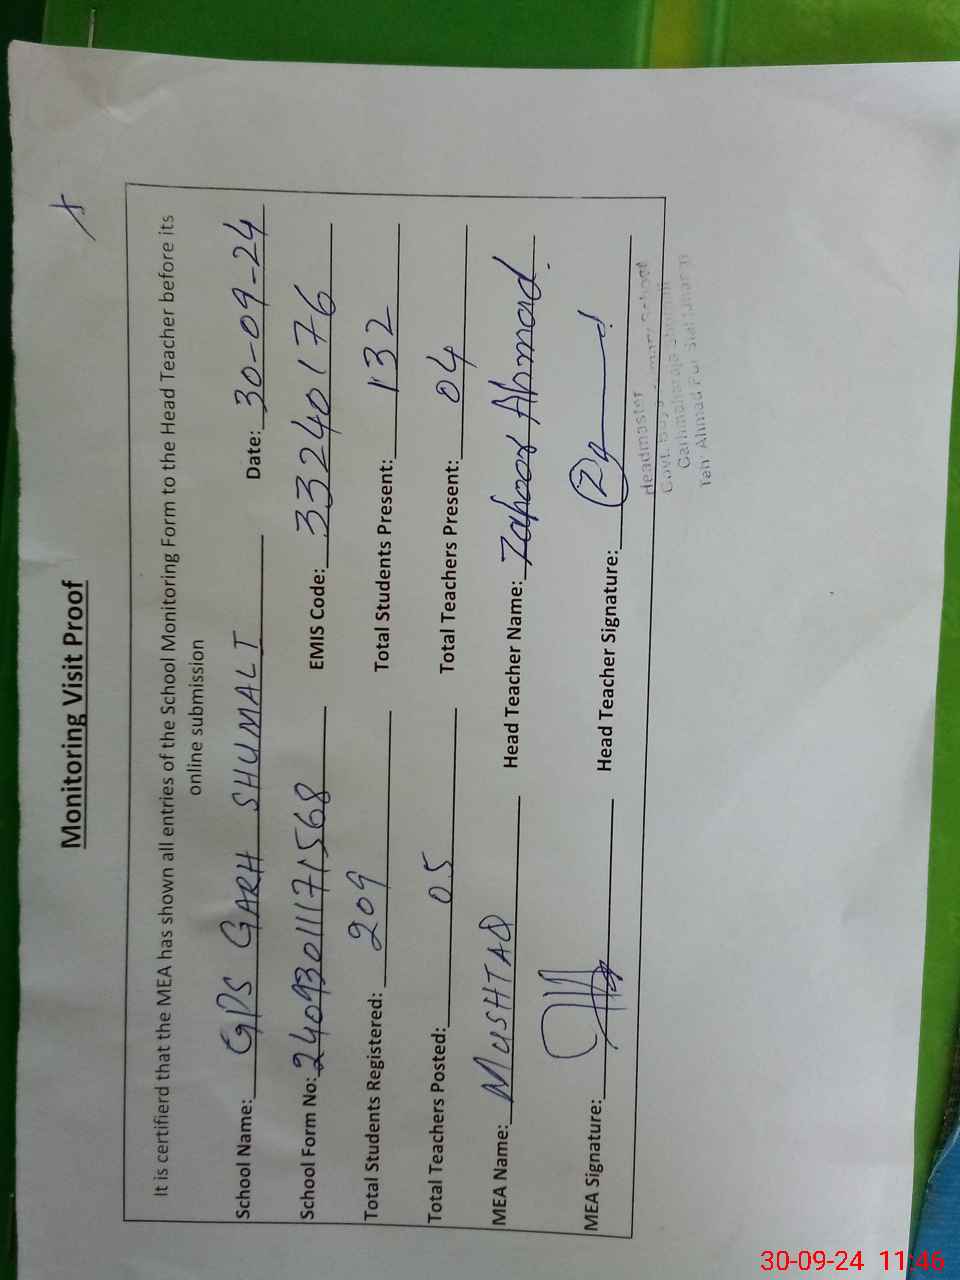 Monitoring Visit Proof
It is certifierd that the MEA has shown all entries of the School Monitoring Form to the Head Teacher before its
online submission
School Name: GPS GARH SHUMALI Date: 30-09-24
School Form No: 240930111171568 EMIS Code: 33240176
Total Students Registered: 209 Total Students Present: 132
Total Teachers Posted: 05 Total Teachers Present: 04
MEA Name: MUSHTAQ Head Teacher Name: Zahoor Ahmad.
MEA Signature: Head Teacher Signature:
Headmaster
Govt. Boys Primary School
Garhmaharaja
Teh: Ahmad Pur Sial
30-09-24 11:46